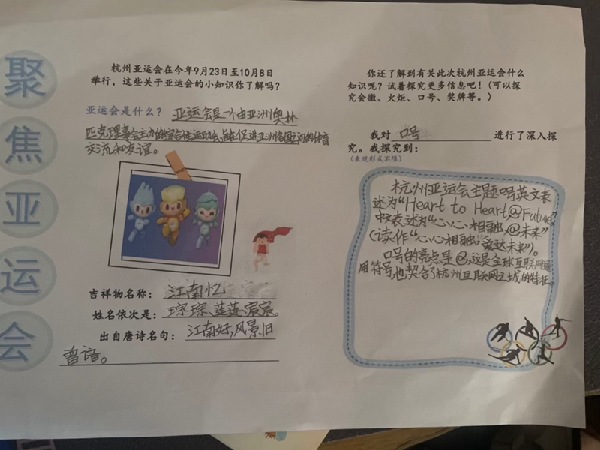 聚焦亚运会
杭州亚运会在今年9月23日至10月8日
举行，这些关于亚运会的小知识你了解吗？
亚运会是什么？ 亚运会是一个由亚洲奥林
匹克理事会主办的综合性运动会，
交流和友谊。
吉祥物名称：江南忆
姓名依次是：琮琮、莲莲、宸宸
出自唐诗名句：江南好，风景旧
曾谙。
你还了解到有关此次杭州亚运会什么
知识呢？试着探究更多信息吧！（可以探
究会徽、火炬、口号、奖牌等。）
我对 口号 进行了深入探
究。我探究到：
（表现形式不限）
杭州亚运会主题口号英文表
述为“Heart to Heart,@Future”
中文表述为“心心相融，@未来”
（读作“心心相融，爱达未来”）。
口号的亮点是@,这是全球互联网通
用符号,也契合了杭州互联网之城的特征。